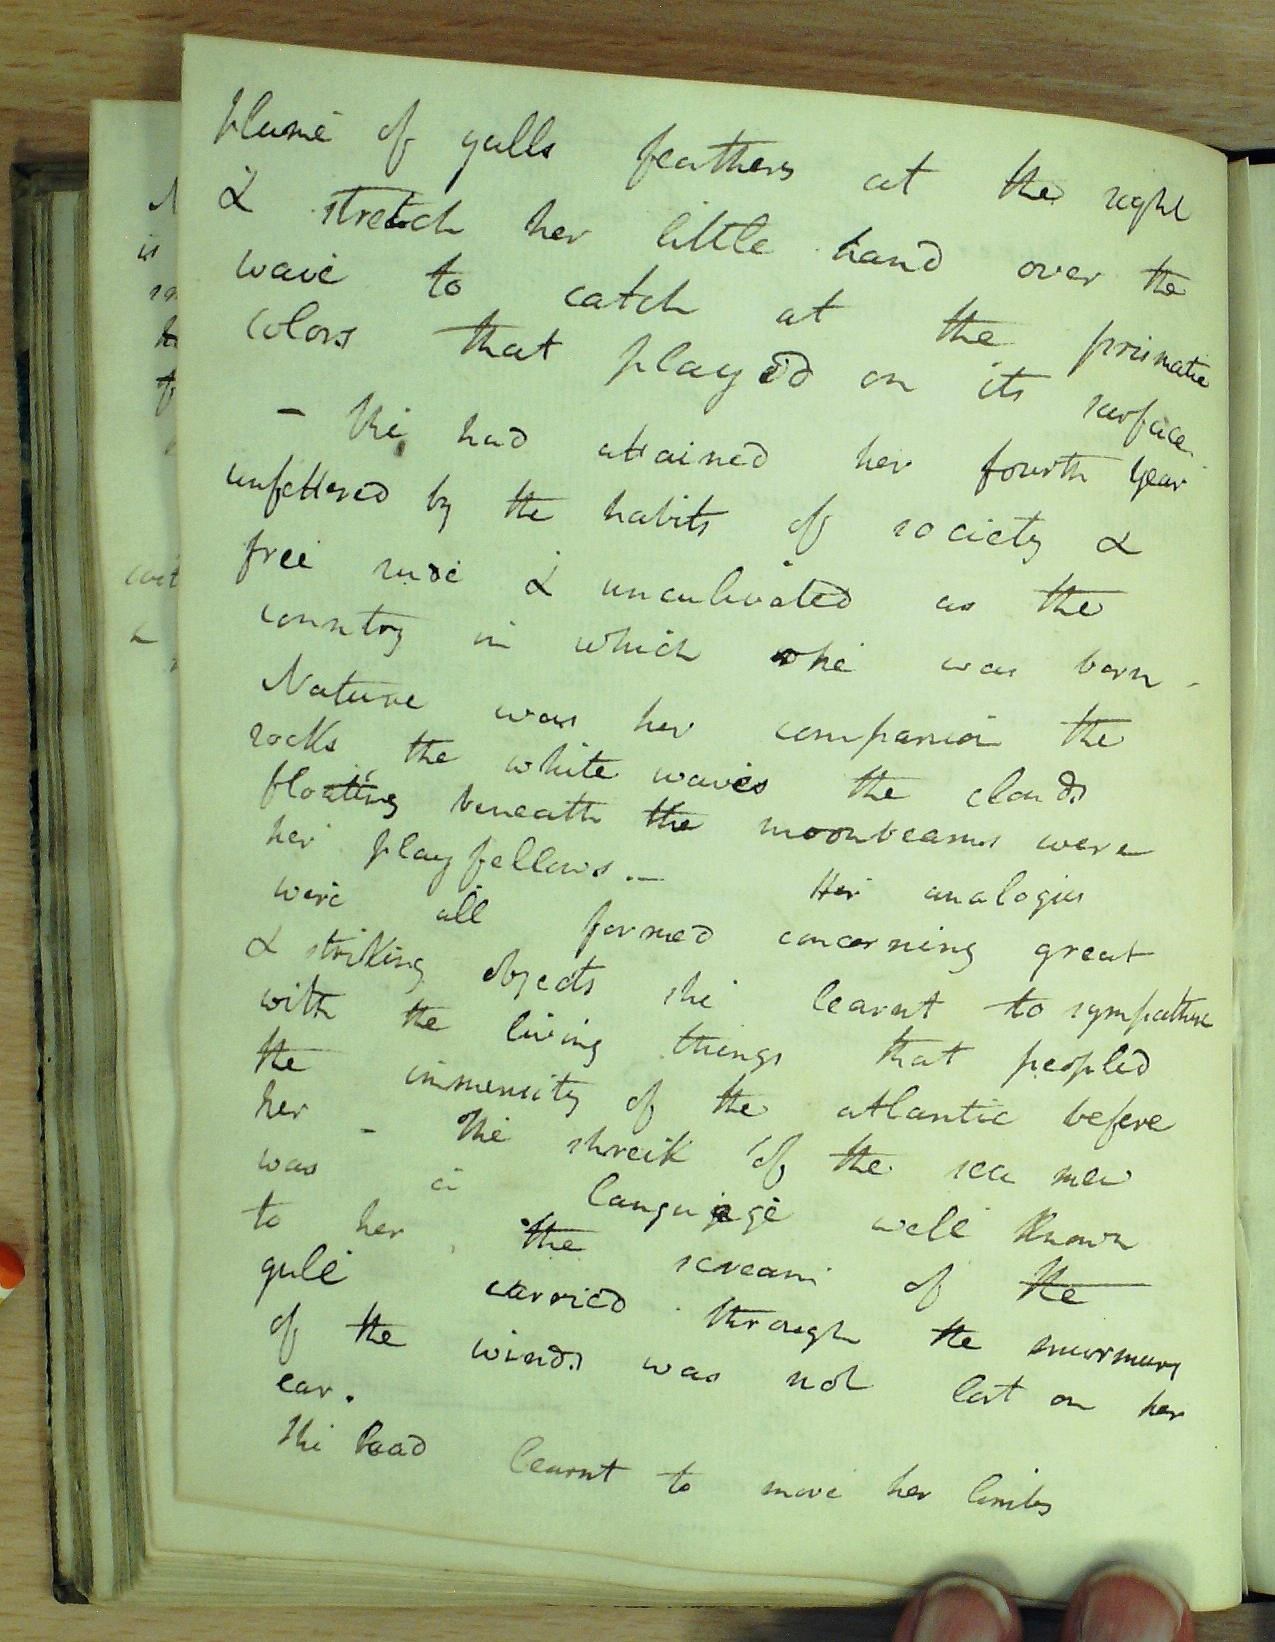 plume of gulls feathers at the sight
& stretch her little hand over the
wave to catch at the prismatic
colors that played on its surface
- She had attained her fourth year
unfettered by the habits of society &
free rude & uncultivated as the
country in which she was born -
Nature was her companion the
rocks the white waves the clouds
floating beneath the moonbeams were
her playfellows. - Her analogies
were all formed concerning great
& striking objects she learnt to sympathise
with the living things that peopled
the immensity of the atlantic before
her - The shreik of the sea mew
was a language well known
to her, the scream of the
gull carried through the murmurs
of the winds was not lost on her
ear.
She had learnt to move her limbs